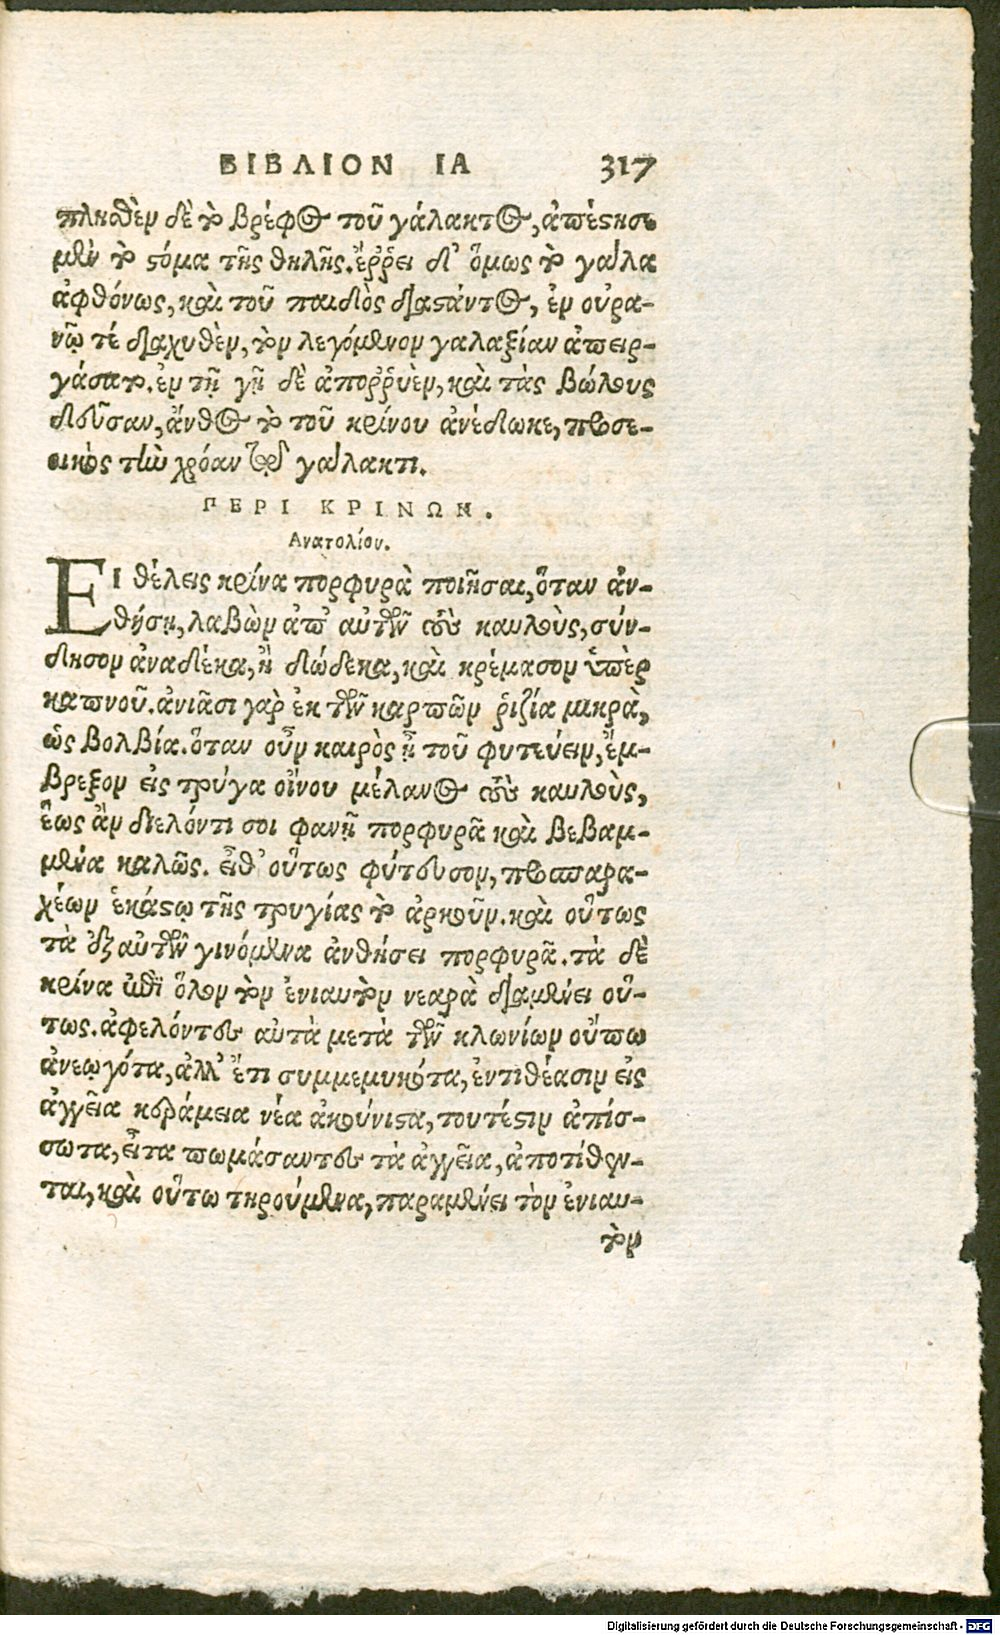 ΒΙΒΛΙΟΝ ΙΑ 317
πλησθὲν δὲ τὸ βρέφος τοῦ γάλακτος, ἀπέστησε
μὲν τὸ στόμα τῆς θηλῆς. ἔῤῥει δ᾽ ὅμως τὸ γάλα
ἀφθόνως, καὶ τοῦ παιδὸς διαστάντος, ἐν οὐρα-
νῷ τέ διαχυθὲν, τὸν λεγόμενον γαλαξίαν ἀπειρ-
γάσατο. ἐν τῇ γῇ δὲ ἀποῤῥυὲν, καὶ τὰς βώλους
δεῦσαν, ἄνθος τὸ τοῦ κρίνου ἀνέδωκε, προσε-
οικὸς τὴν χρόαν τῷ γάλακτι.
ΠΕΡΙ ΚΡΙΝΩΝ.
Ανατολίου.
ΕΙ θέλεις κρίνα πορφυρὰ ποιῆσαι, ὅταν ἀν-
θήσῃ, λαβὼν ἀπ᾽ αὐτῶν τοὺς καυλοὺς, σύν-
δησον ἀναδέκα, ἢ δώδεκα, καὶ κρέμασον ὑπὲρ
καπνοῦ. ἀνιᾶσι γὰρ ἐκ τῶν καρπῶν ῥιζία μικρὰ,
ὡς βολβία. ὅταν οὖν καιρὸς ᾖ τοῦ φυτεύειν, ἔμ-
βρεξον εἰς τρύγα οἴνου μέλανος τοὺς καυλοὺς,
ἕως ἂν διελόντι σοι φανῇ πορφυρᾶ καὶ βεβαμ-
μένα καλῶς. εἶθ᾽ οὕτως φύτευσον, προσπαρα-
χέων ἑκάστῳ τῆς τρυγίας τὸ ἀρκοῦν. καὶ οὕτως
τὰ ἐξ αὐτῶν γινόμενα ἀνθήσει πορφυρᾶ. τὰ δὲ
κρίνα ἐπὶ ὅλον τὸν ἐνιαυτὸν νεαρὰ διαμένει οὕ-
τως. ἀφελόντες αὐτὰ μετὰ τῶν κλωνίων οὔπω
ἀνεῳγότα, ἀλλ᾽ ἔτι συμμεμυκότα, ἐντιθέασιν εἰς
ἀγγεῖα κεράμεια νέα ἀκούνιστα, τουτέστιν ἀπίσ-
σωτα, εἶτα πωμάσαντες τὰ ἀγγεῖα, ἀποτίθεν-
ται, καὶ οὕτω τηρούμενα, παραμένει τὸν ἐνιαυ-
τὸν
Digitalisierung gefördert durch die Deutsche Forschungsgemeinschaft - DFG